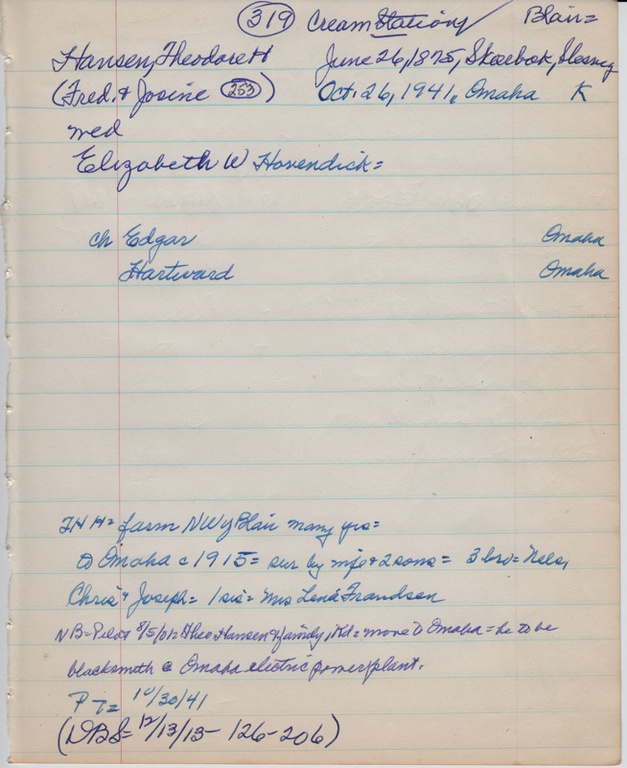 319 Cream Station / Blair=
Hansen, Theodore H June 26, 1875, Skaebok, Slesvig
(Fred. & Josine 253) Oct. 26, 1941, Omaha K
wed
Elizabeth W Hovendick=
ch Edgar Omaha
Hartward Omaha
THH= farm NW of Blair many yrs=
to Omaha c 1915= sur by wife & 2 sons= 3 bro= Nels,
Chris & Joseph= 1 sis= Mrs Lena Frandsen
NB=Pilot 8/5/01= Theo. Hansen & family, Kd= move to Omaha= he to be
blacksmith @ Omaha electric power plant.
PT= 10/30/41
(DBS= 12/13/13- 126-206)